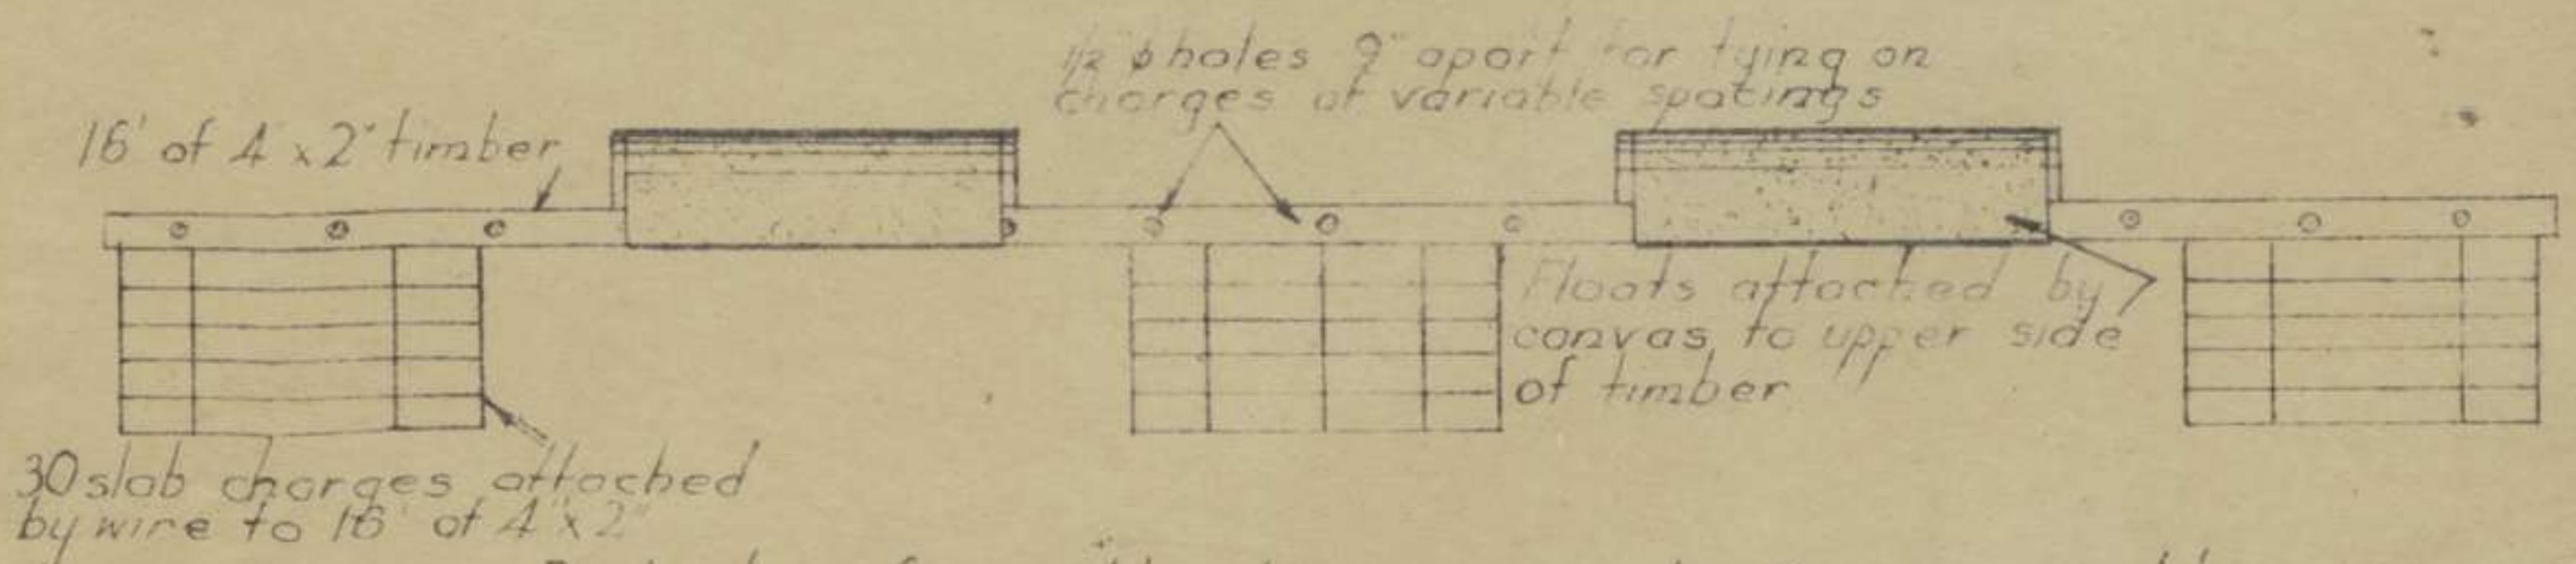 1/2" φ holes 9" apart for tying on
charges at variable spacings
16' of 4" x 2" timber
Floats attached by
canvas to upper side
of timber
30 slab charges attached
by wire to 16' of 4" x 2"